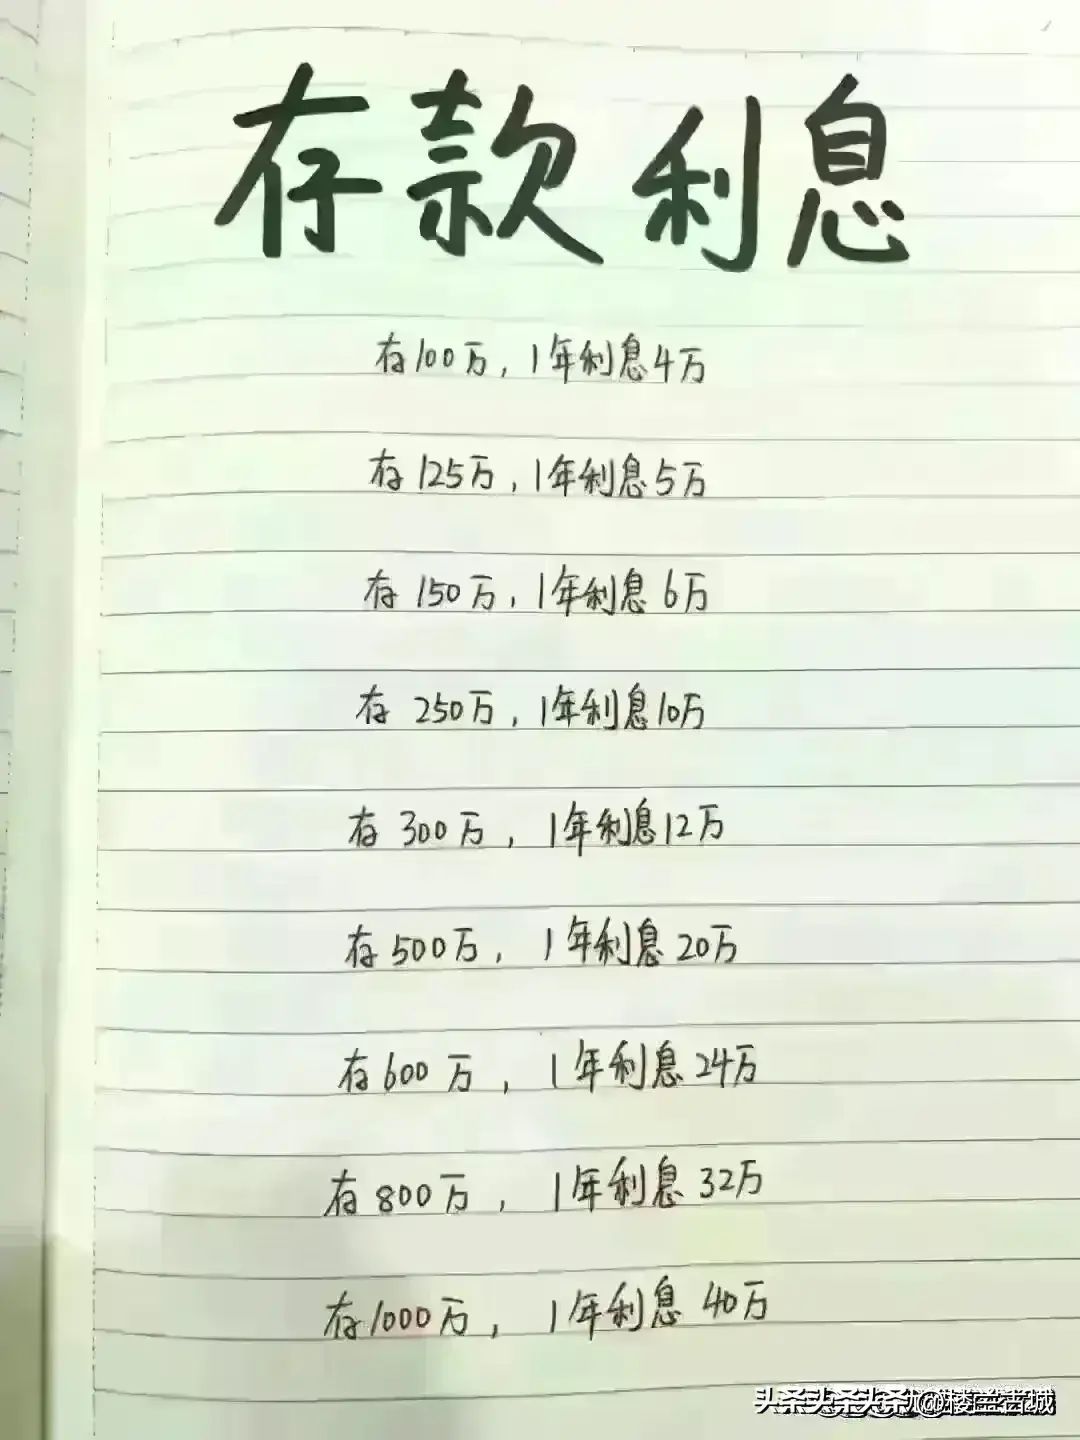 存款利息
存100万，1年利息4万
存125万，1年利息5万
存150万，1年利息6万
存 250万，1年利息10万
存 300万，1年利息12万
存 500万，1年利息 20万
存 600 万，1年利息 24万
存 800万，1年利息 32万
存1000万，1年利息 40万
头条 @楼兰古城